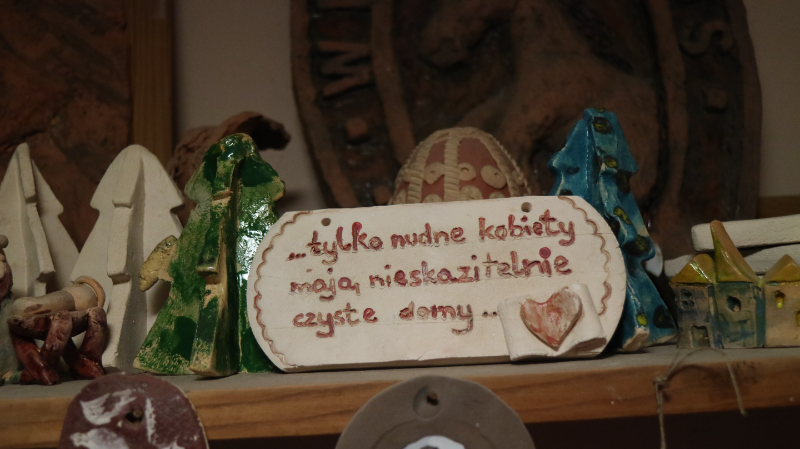 ...tylko nudne kobiety
mają nieskazitelnie
czyste domy...